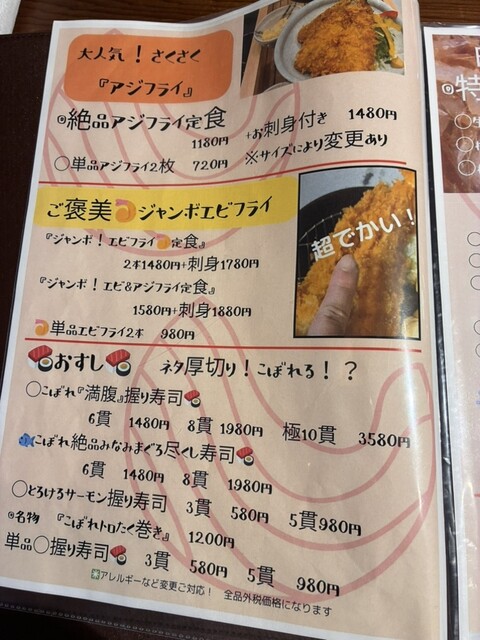 大人気！さくさく
『アジフライ』
◎絶品アジフライ定食 +お刺身付き 1480円
1180円
○単品アジフライ2枚 720円 ※サイズにより変更あり
ご褒美🍤ジャンボエビフライ
『ジャンボ！エビフライ🍤定食』
2本1480円+刺身1780円
『ジャンボ！エビ&アジフライ定食』
1580円+刺身1880円
🍤単品エビフライ2本 980円
超でかい！
🍣おすし🍣 ネタ厚切り！こぼれる！？
○こぼれ『満腹』握り寿司🍣
6貫 1480円 8貫 1980円 極10貫 3580円
🐟こぼれ絶品みなみまぐろ尽くし寿司🍣
6貫 1480円 8貫 1980円
○とろけるサーモン握り寿司 3貫 580円 5貫980円
◎名物 『こぼれトロたく巻き』 1200円
単品○握り寿司🍣 3貫 580円 5貫 980円
✳️アレルギーなど変更ご対応！ 全品外税価格になります
◎特